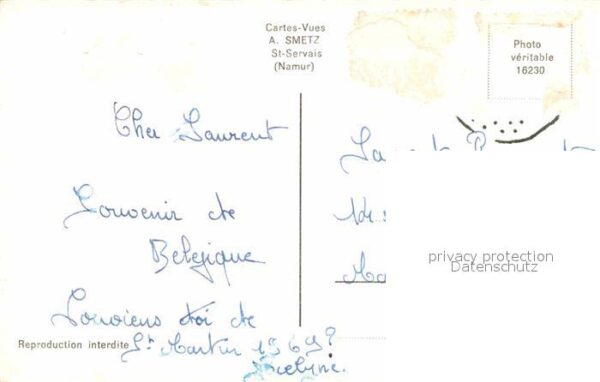 Cartes-Vues
A. SMETZ
St-Servais
(Namur)
Photo
véritable
16230
Cher Laurent
Souvenir de
Belgique
Souviens toi de
St Martin 1969?
Jocelyne.
Reproduction interdite
privacy protection
Datenschutz